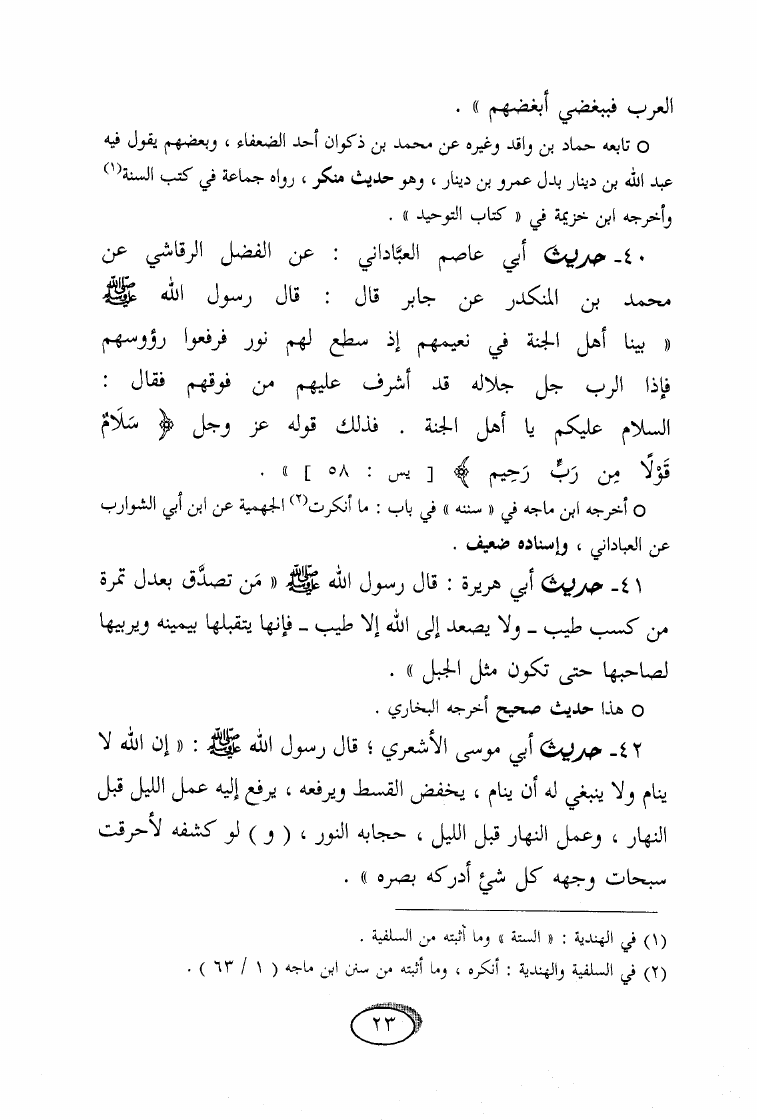 العرب فببغضي أبغضهم » .
O تابعه حماد بن واقد وغيره عن محمد بن ذكوان أحد الضعفاء ، وبعضهم يقول فيه
عبد الله بن دينار بدل عمرو بن دينار ، وهو حديث منكر ، رواه جماعة في كتب السنة(١)
وأخرجه ابن خزيمة في « كتاب التوحيد » .
٤٠ـ حديث أبي عاصم العبَّاداني : عن الفضل الرقاشي عن
محمد بن المنكدر عن جابر قال : قال رسول الله ﷺ
« بينا أهل الجنة في نعيمهم إذ سطع لهم نور فرفعوا رؤوسهم
فإذا الرب جل جلاله قد أشرف عليهم من فوقهم فقال :
السلام عليكم يا أهل الجنة . فذلك قوله عز وجل ﴿ سَلَامٌ
قَوْلًا مِن رَبٍّ رَحِيم ﴾ [ يس : ٥٨ ] » .
O أخرجه ابن ماجه في « سننه » في باب : ما أنكرت(٢) الجهمية عن ابن أبي الشوارب
عن العباداني ، وإسناده ضعيف .
٤١ـ حديث أبي هريرة : قال رسول الله ﷺ « مَن تصدَّق بعدل تمرة
من كسب طيب ـ ولا يصعد إلى الله إلا طيب ـ فإنها يتقبلها بيمينه ويربيها
لصاحبها حتى تكون مثل الجبل » .
O هذا حديث صحيح أخرجه البخاري .
٤٢ـ حديث أبي موسى الأشعري ؛ قال رسول الله ﷺ : « إن الله لا
ينام ولا ينبغي له أن ينام ، يخفض القسط ويرفعه ، يرفع إليه عمل الليل قبل
النهار ، وعمل النهار قبل الليل ، حجابه النور ، ( و ) لو كشفه لأحرقت
سبحات وجهه كل شئ أدركه بصره » .
(١) في الهندية : « الستة » وما أثبته من السلفية .
(٢) في السلفية والهندية : أنكره ، وما أثبته من سنن ابن ماجه ( ١ / ٦٣ ) .
٢٣